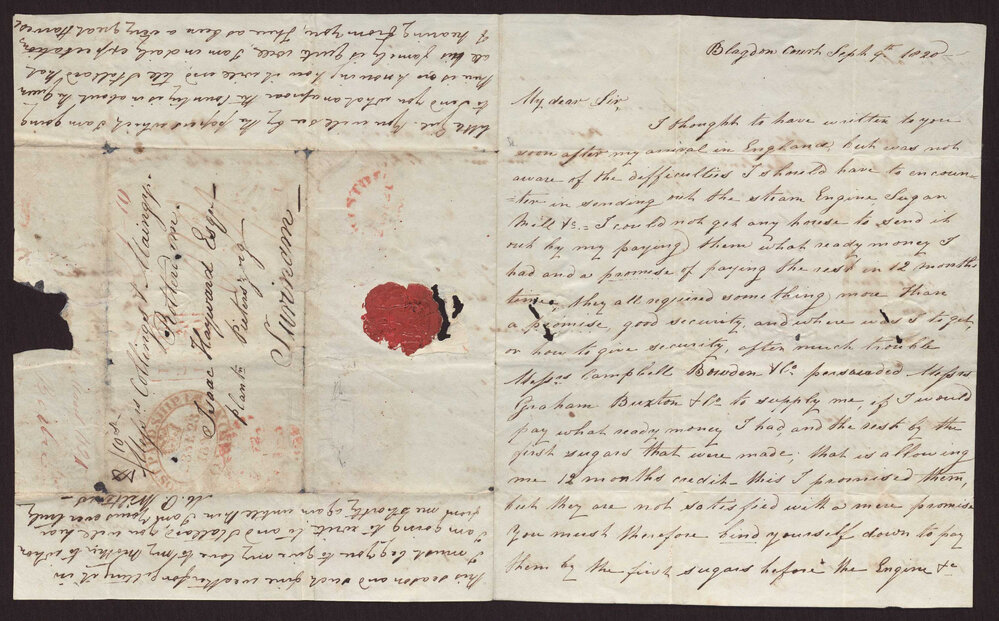 Blagdon Court Sept 9th 1820
My dear Sir,
I thought to have written to you
soon after my arrival in England, but was not
aware of the difficulties I should have to encoun-
ter in sending out the steam Engine, Sugar
Mill &c. I could not get any house to send it
out by my paying them what ready money I
had and a promise of paying the rest in 12 months
time, they all required something more than
a promise, good security, and where was I to get,
or how to give security, after much trouble
Messrs Campbell Bowden & Co persuaded Messrs
Graham Buxton & Co to supply me, if I would
pay what ready money I had, and the rest by the
first sugars that were made, that is allowing
me 12 months credit this I promised them,
but they are not satisfied with a mere promise
You must therefore bind yourself down to pay
them by the first sugars before the Engine &c
little Girl. You will see by the papers which I am going
to send you what an uproar the Country is in about the Queen
this is no knowing how it will end, tell Stellard that
all his family is quite well, I am in daily expectation
of hearing from you, There has been a very great Harvest
this season and such fine weather for getting it in
I must beg you to give my love to my Mother, to whom
I am going to write to and Stellard, you will hear
from me shortly again untill then I am yours ever truly
M. O.
Messrs Collings & Maingy
Rotterdam.
Isaac Hayward Esqr
plantn Pieterszorg
Surinam
SHIP